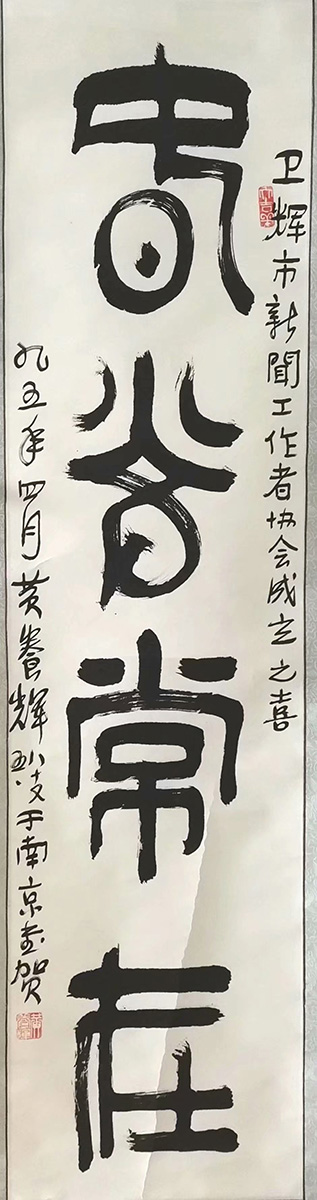 卫辉市新聞工作者协会成立之喜
春常在
九五年四月黄養辉于南京書贺